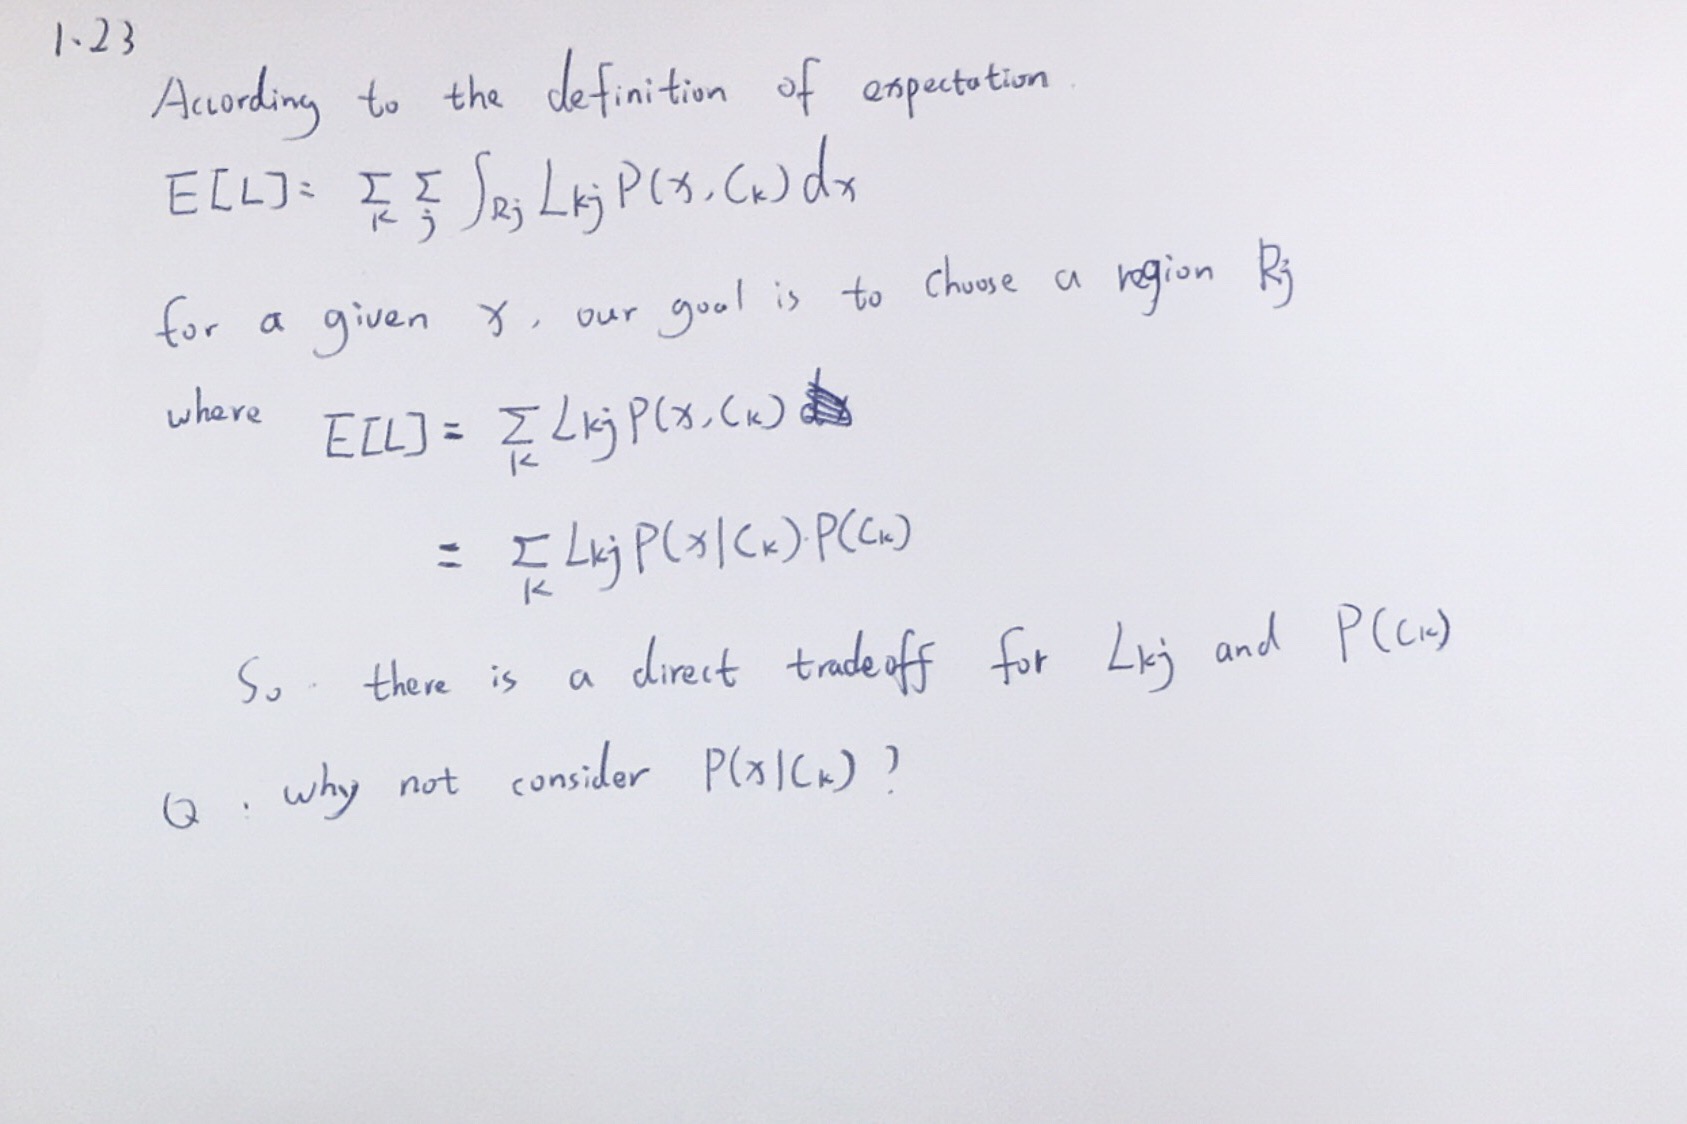 1.23
According to the definition of expectation.
E[L]= Σ_K Σ_j ∫_Rj Lkj P(x, Ck) dx
for a given x, our goal is to choose a region Rj
where E[L] = Σ_K Lkj P(x, Ck)
= Σ_K Lkj P(x|Ck)·P(Ck)
So. there is a direct tradeoff for Lkj and P(Ck)
Q: why not consider P(x|Ck)?